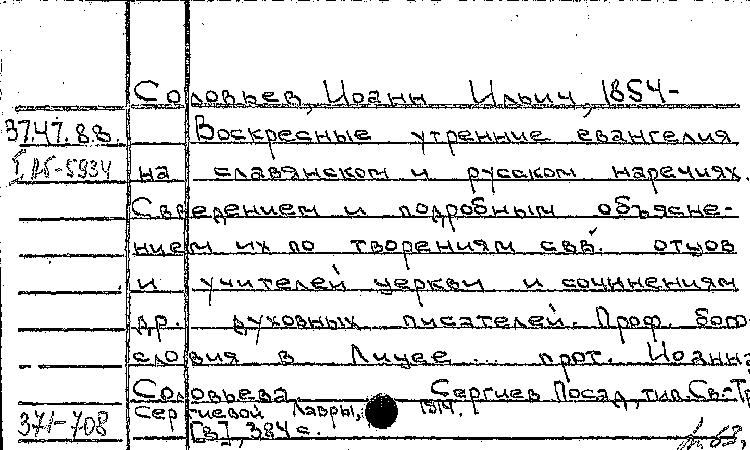 Соловьев, Иоанн Ильич, 1854-
37.47.8.8. Воскресные утренние евангелия
на славянском и русском наречиях.
С введением и подробным объясне-
нием их по творениям свв. отцов
и учителей церкви и сочинениям
др. духовных писателей. Проф. бого-
словия в Лицее ... прот. Иоанна
Соловьева. Сергиев Посад, тип. Св.-Тр.
Сергиевой Лавры, 1914.
371-708 [3], 384 с.